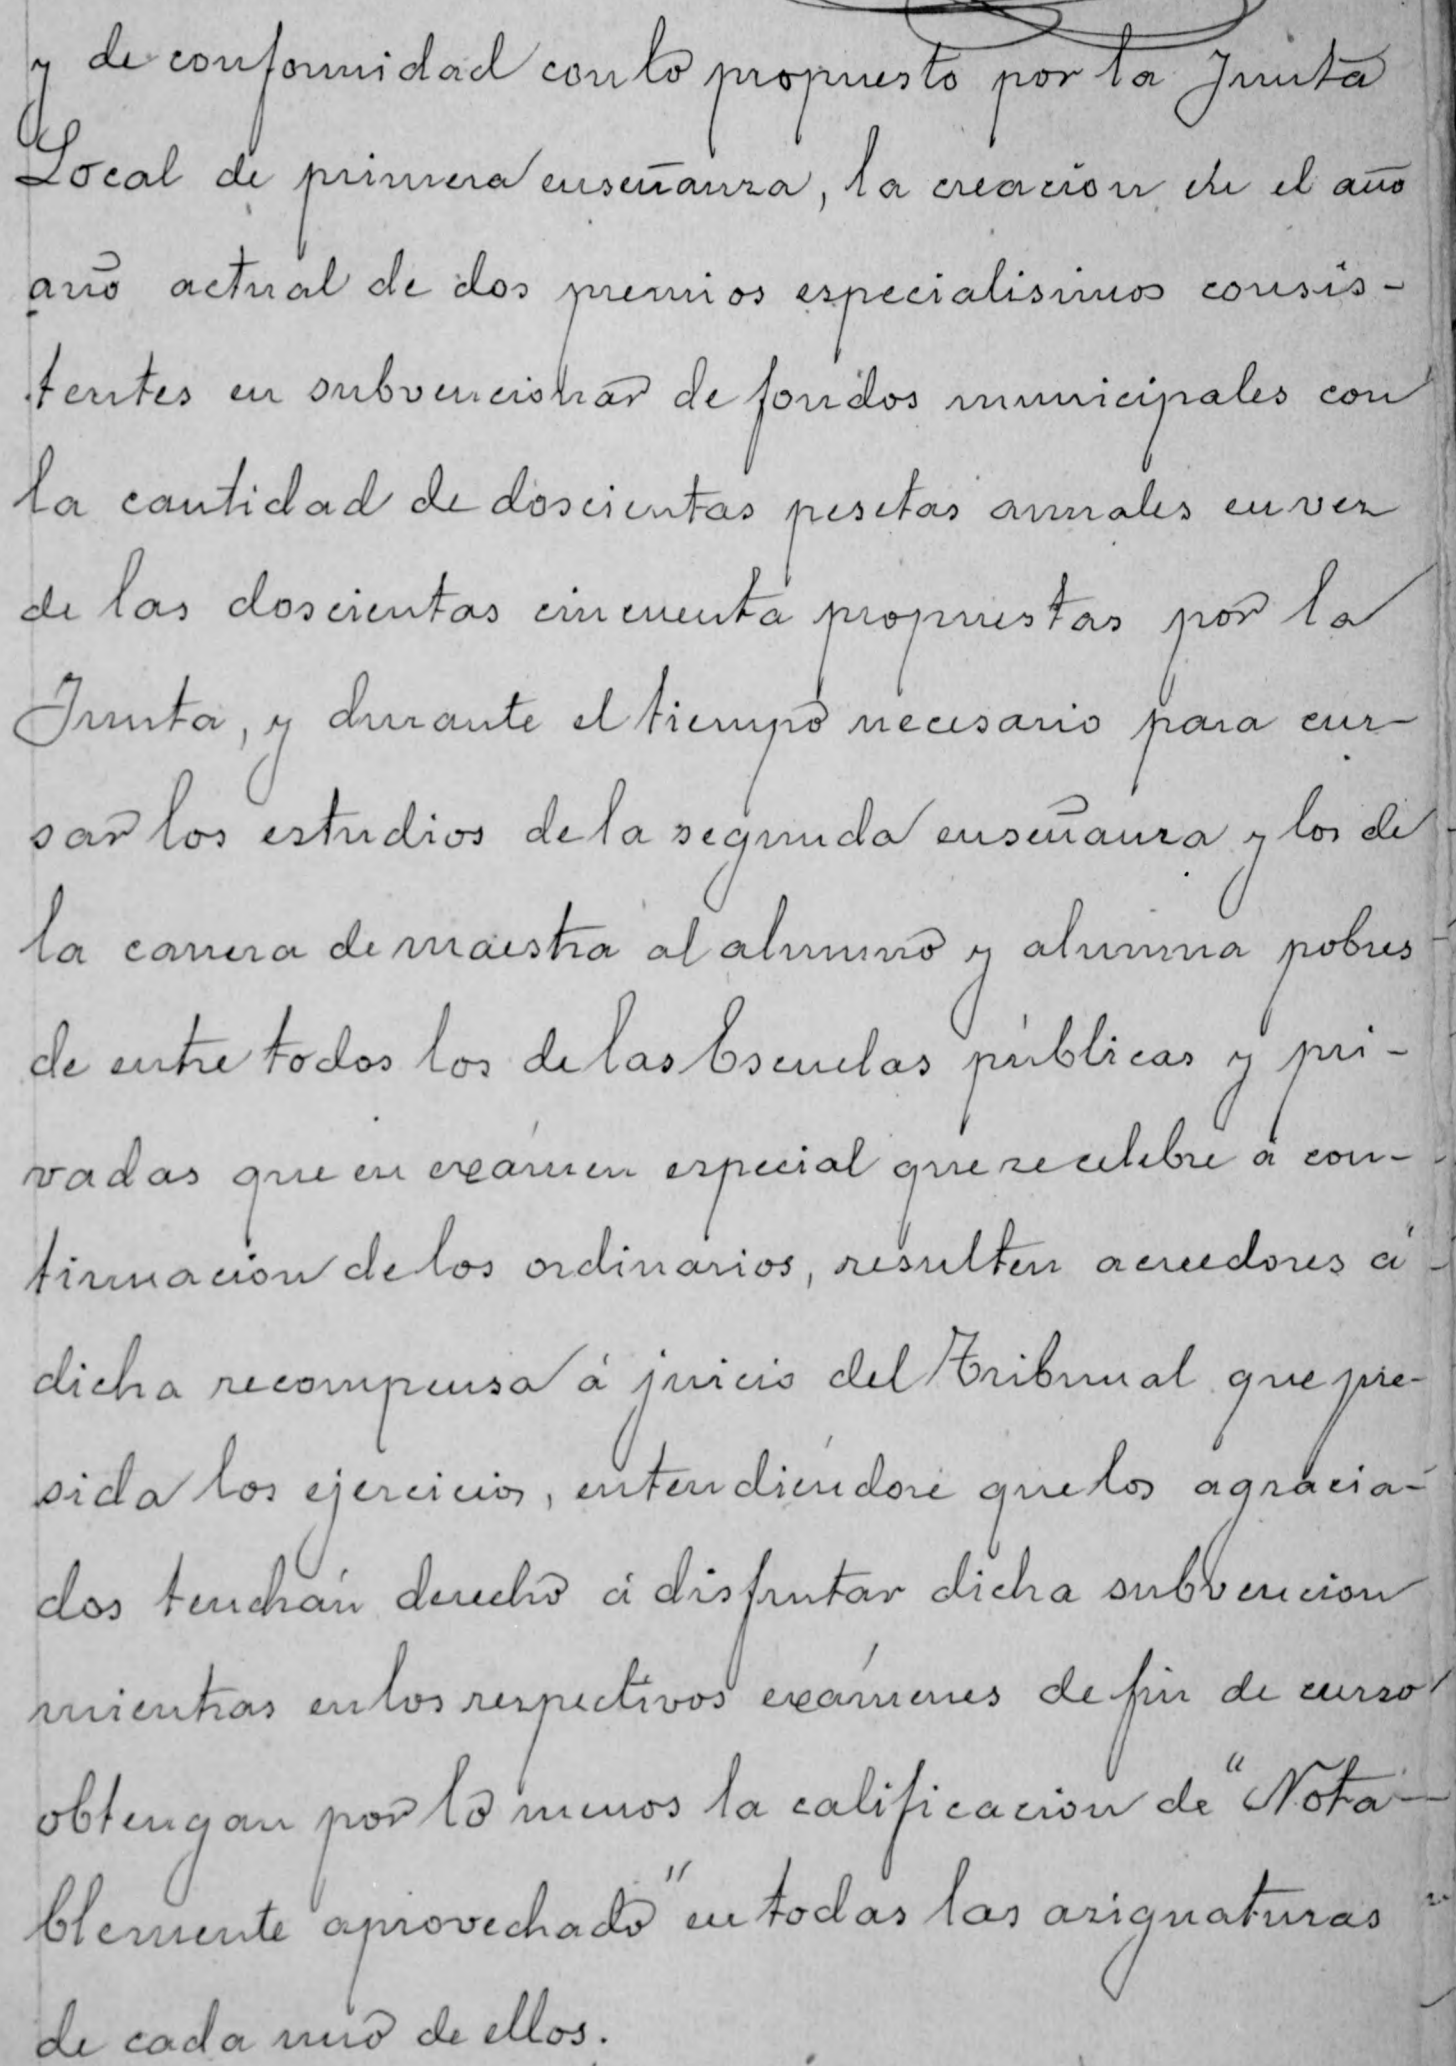 y de conformidad con lo propuesto por la Junta
Local de primera enseñanza, la creacion de el año
año actual de dos premios especialisimos consis-
tentes en subvencionar de fondos municipales con
la cantidad de doscientas pesetas anuales en vez
de las doscientas cincuenta propuestas por la
Junta, y durante el tiempo necesario para cur-
sar los estudios de la segunda enseñanza y los de
la carrera de maestra al alumno y alumna pobres
de entre todos los de las Escuelas públicas y pri-
vadas que en exámen especial que se celebre á con-
tinuacion de los ordinarios, resulten acreedores á
dicha recompensa á juicio del Tribunal que pre-
sida los ejercicios, entendiéndose que los agracia-
dos tendrán derecho á disfrutar dicha subvencion
mientras en los respectivos exámenes de fin de curso
obtengan por lo menos la calificacion de "Nota-
blemente aprovechado" en todas las asignaturas
de cada uno de ellos.